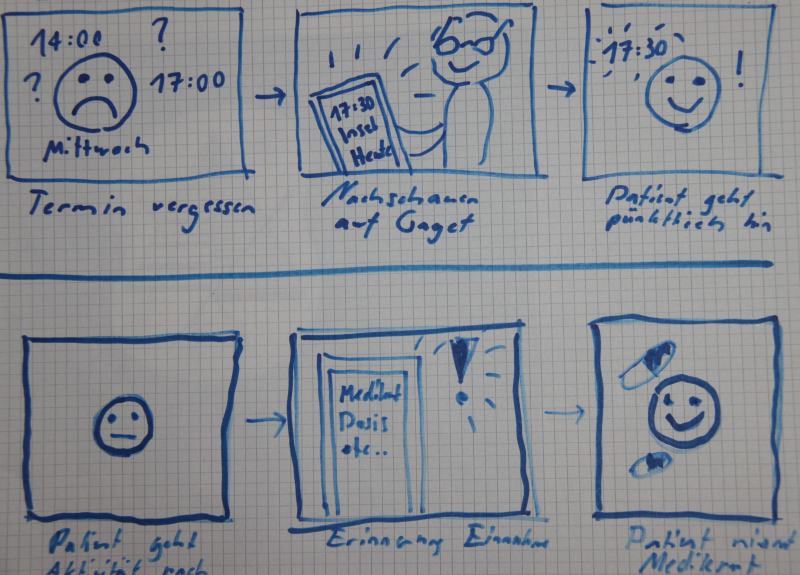 14:00
?
?
17:00
Mittwoch
Termin vergessen
17:30
Insel
Heute
Nachschauen
auf Gaget
17:30
!
Patient geht
pünktlich hin
Patient geht
Aktivität nach
Medikmt
Dosis
etc..
!
Erinnerung Einnahme
Patient nimmt
Medikmt